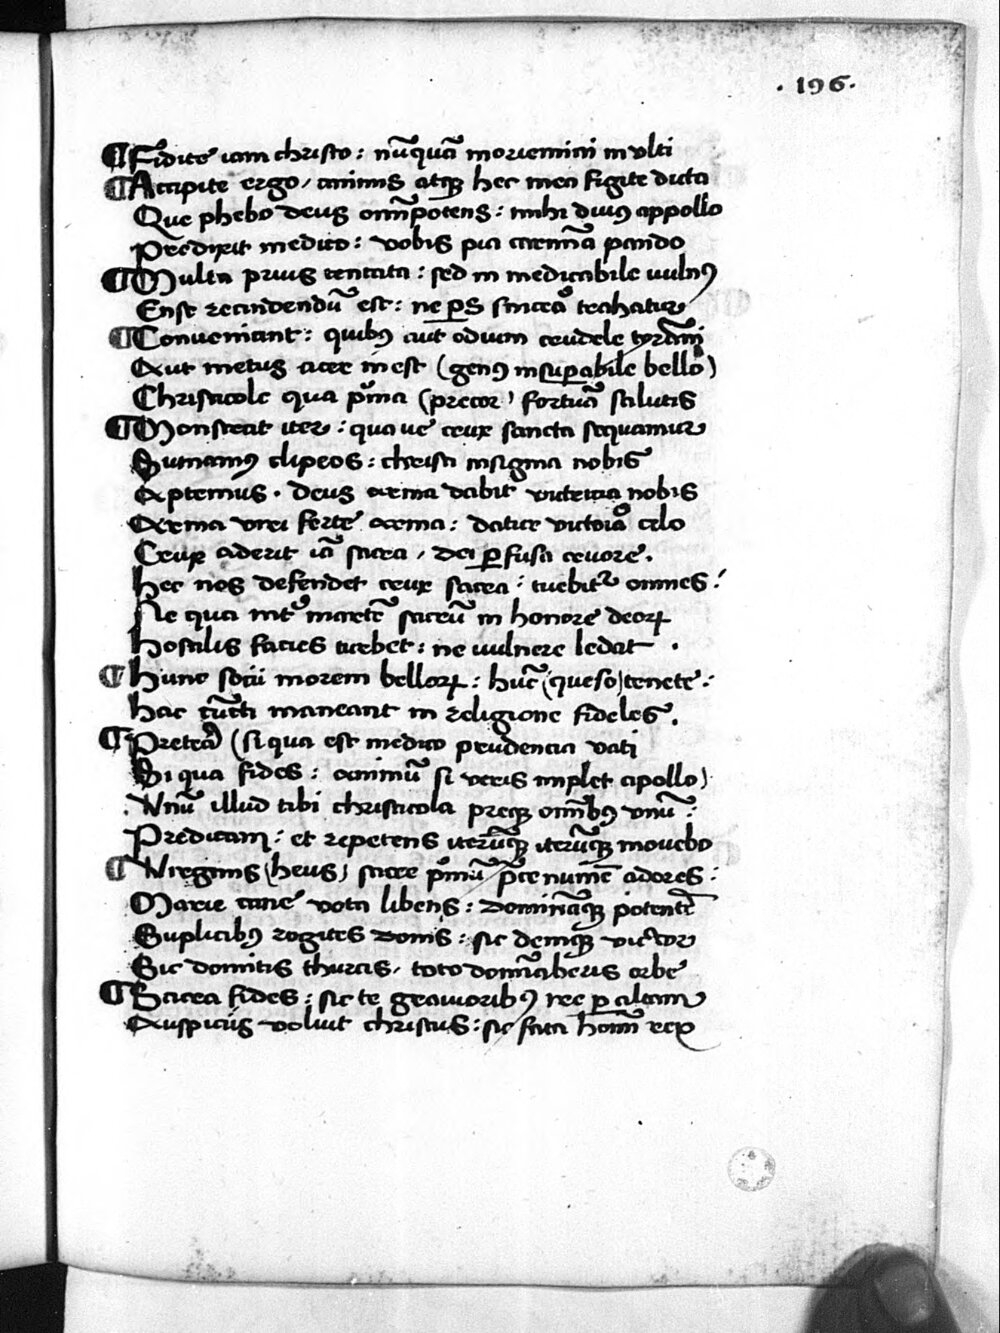 · 196 ·
¶ Fidite iam christo : nūquā moriemini multi
¶ Accipite ergo / animis atqȝ hec mea figite dicta
Que phebo deus omīpotens : mihi diuꝯ appollo
Predixit medico : vobis pia carmīa pando
¶ Multa prius tentata : sed in medicabile uulnꝯ
Ense recindendū est : ne ꝑs sincera trahatur
¶ Conueniant : quibꝯ aut odium crudele tyrāni
Aut metus acer inest (genꝯ insuꝑabile bello)
Christicole qua pͥma (precor) fortūa salutis
¶ Monstrat iter : qua ue crux sancta sequamur
Sumamꝯ clipeos : christi insignia nobis
Aptemus . Deus arma dabit victricia nobis
Arma viri ferte arma : datur victoria celo
Crux aderit iā sacra / dei ꝑfusa cruore .
hec nos defendet crux sacra : tuebitᷣ omnes :
Ne qua intͬ martē sacrū in honore deoꝝ
hostilis facies turbet : ne uulnere ledat .
¶ hunc socii morem belloꝝ : hūc (queso) tenete :
hac cūcti maneant in religione fideles .
¶ Pretea (si qua est medico prudencia vati
Si qua fides : animū si veris implet apollo)
Vnū illud tibi christicola preqȝ omībꝯ vnū :
Predicam : et repetens iterūqȝ iterūqȝ mouebo
¶ Virginis (heus) sacre pͥmū p̄ce numē adores :
Marie cane vota libens : Domināqȝ potentē
Suplicibꝯ rogites donis : sic deniqȝ victor
Sic domitis thurcis / toto domīaberis orbe
¶ Sacra fides : sic te grauioribꝯ nec ꝑ altam
Auspiciis voluit christus : sic fata homī rex